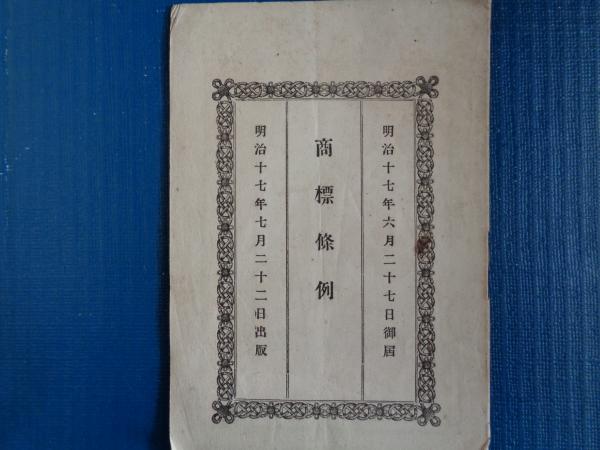 明治十七年六月二十七日御届
商標條例
明治十七年七月二十二日出版